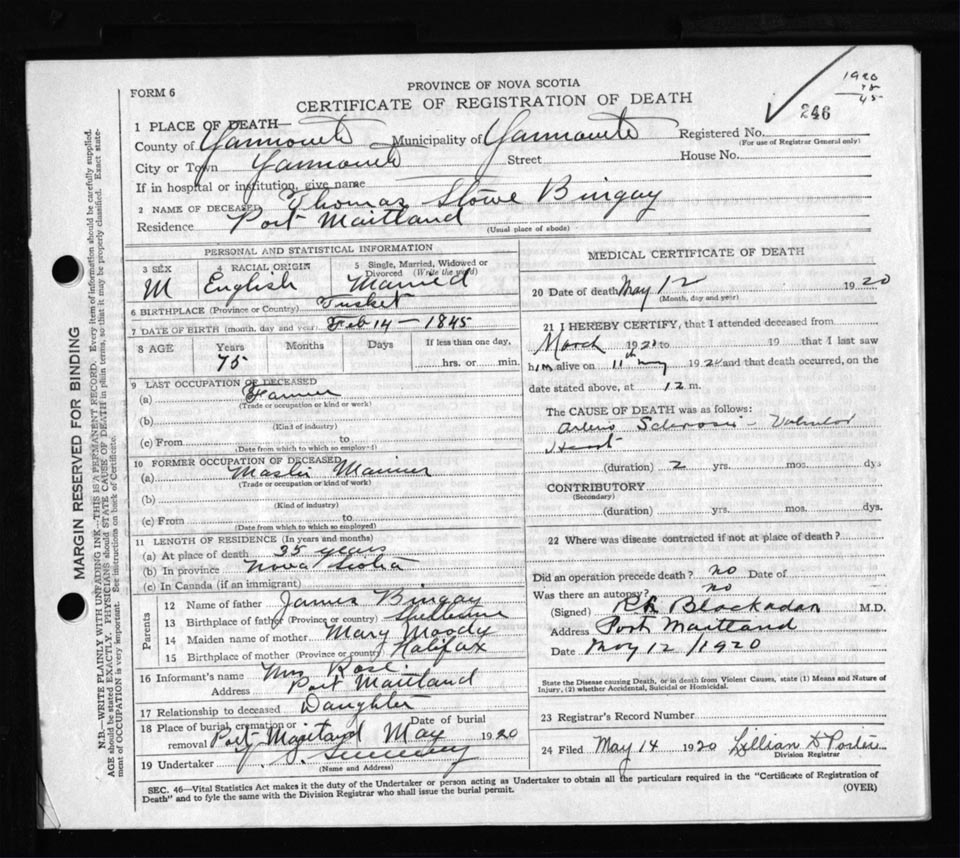 1920
75
45
PROVINCE OF NOVA SCOTIA
FORM 6
CERTIFICATE OF REGISTRATION OF DEATH
246
1 PLACE OF DEATH—
County of Yarmouth Municipality of Yarmouth Registered No.
(For use of Registrar General only)
City or Town Yarmouth Street House No.
If in hospital or institution, give name
2 NAME OF DECEASED Thomas Stowe Bingay
Residence Port Maitland
(Usual place of abode)
PERSONAL AND STATISTICAL INFORMATION
3 SEX
M
4 RACIAL ORIGIN
English
5 Single, Married, Widowed or Divorced (Write the word)
Married
6 BIRTHPLACE (Province or Country) Tusket
7 DATE OF BIRTH (month, day and year) Feb 14 — 1845
8 AGE Years Months Days If less than one day,
75 hrs. or min.
9 LAST OCCUPATION OF DECEASED
(a) Farmer
(Trade or occupation or kind of work)
(b)
(Kind of industry)
(c) From to
(Date from which to which so employed)
10 FORMER OCCUPATION OF DECEASED
(a) Master Mariner
(Trade or occupation or kind of work)
(b)
(Kind of industry)
(c) From to
(Date from which to which so employed)
11 LENGTH OF RESIDENCE (In years and months)
(a) At place of death 35 years
(b) In province Nova Scotia
(c) In Canada (if an immigrant)
Parents
12 Name of father James Bingay
13 Birthplace of father (Province or country) Shelburne
14 Maiden name of mother Mary Moody
15 Birthplace of mother (Province or country) Halifax
16 Informant's name Mrs Rose
Address Port Maitland
17 Relationship to deceased Daughter
18 Place of burial, cremation or removal Port Maitland Date of burial May 1920
19 Undertaker J. S. Sweeney
(Name and Address)
MEDICAL CERTIFICATE OF DEATH
20 Date of death May 12 1920
(Month, day and year)
21 I HEREBY CERTIFY, that I attended deceased from
March 192 to 19 that I last saw
him alive on 11th May 192 and that death occurred, on the
date stated above, at 12 m.
The CAUSE OF DEATH was as follows:
Arterio Sclerosis - Valvular
Heart
(duration) 2 yrs. mos. dys
CONTRIBUTORY
(Secondary)
(duration) yrs. mos. dys.
22 Where was disease contracted if not at place of death?
Did an operation precede death? no Date of
Was there an autopsy? no
(Signed) Blackadar M.D.
Address Port Maitland
Date May 12/1920
State the Disease causing Death, or in death from Violent Causes, state (1) Means and Nature of Injury, (2) whether Accidental, Suicidal or Homicidal.
23 Registrar's Record Number
24 Filed May 14 1920 Lillian D Porter
Division Registrar
SEC. 46—Vital Statistics Act makes it the duty of the Undertaker or person acting as Undertaker to obtain all the particulars required in the "Certificate of Registration of
Death" and to fyle the same with the Division Registrar who shall issue the burial permit. (OVER)
MARGIN RESERVED FOR BINDING
N.B.—WRITE PLAINLY WITH UNFADING INK—THIS IS A PERMANENT RECORD. Every item of information should be carefully supplied.
AGE should be stated EXACTLY. PHYSICIANS should STATE CAUSE OF DEATH in plain terms, so that it may be properly classified. Exact state-
ment of OCCUPATION is very important. See instructions on back of Certificate.